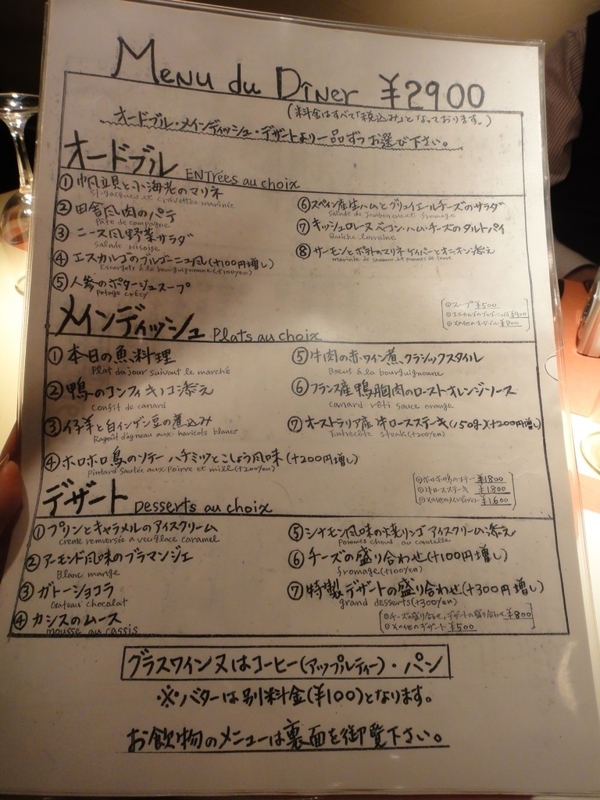 Menu du Dîner ¥2900
(料金はすべて「税込み」となっております。)
オードブル・メインディッシュ・デザートより一品ずつお選び下さい。
オードブル ENTrées au choix
① 帆立貝と小海老のマリネ
② 田舎風肉のパテ
Pâte de campagne
③ ニース風野菜サラダ
Salade niçoise
④ エスカルゴのブルゴーニュ風(+100円増し)
Escargots à la bourguignonne(+100yen)
⑤ 人参のポタージュスープ
Potage crécy
⑥ スペイン産生ハムとグリュイエールチーズのサラダ
⑦ キッシュロレーヌ ベーコン・ハム・チーズのタルトパイ
Quiche lorraine
⑧ サーモンとポテトのマリネ ケイパーとオニオン添え
①スープ ¥500
メインディッシュ Plats au choix
① 本日の魚料理
Plat du jour suivant le marché
② 鴨のコンフィ キノコ添え
Confit de canard
③ 仔羊と白インゲン豆の煮込み
Ragoût d'agneau aux haricots blancs
④ ホロホロ鳥のソテー ハチミツとこしょう風味(+200円増し)
Pintard sautée aux Poivre et miel(+200yen)
⑤ 牛肉の赤ワイン煮、クラシックスタイル
Boeuf à la bourguignonne
⑥ フランス産鴨胸肉のロースト オレンジソース
Canard rôti sauce orange
⑦ オーストラリア産牛ロースステーキ(150g)(+200円増し)
Entrecôte steak(+200yen)
¥1800
¥1800
¥1600
デザート Desserts au choix
① プリンとキャラメルのアイスクリーム
Crème renversée avec glace caramel
② アーモンド風味のブラマンジェ
Blanc mange
③ ガトーショコラ
Gateau chocolat
④ カシスのムース
mousse au cassis
⑤ シナモン風味の焼リンゴ アイスクリーム添え
Pommes chaud au cannelle
⑥ チーズの盛り合わせ(+100円増し)
fromage(+100yen)
⑦ 特製デザートの盛り合わせ(+300円増し)
grand desserts(+300yen)
①チーズの盛り合わせ、デザートの盛り合わせ ¥800
②その他のデザート ¥500
グラスワイン又はコーヒー(アップルティー)・パン
※バターは別料金(¥100)となります。
お飲物のメニューは裏面を御覧下さい。